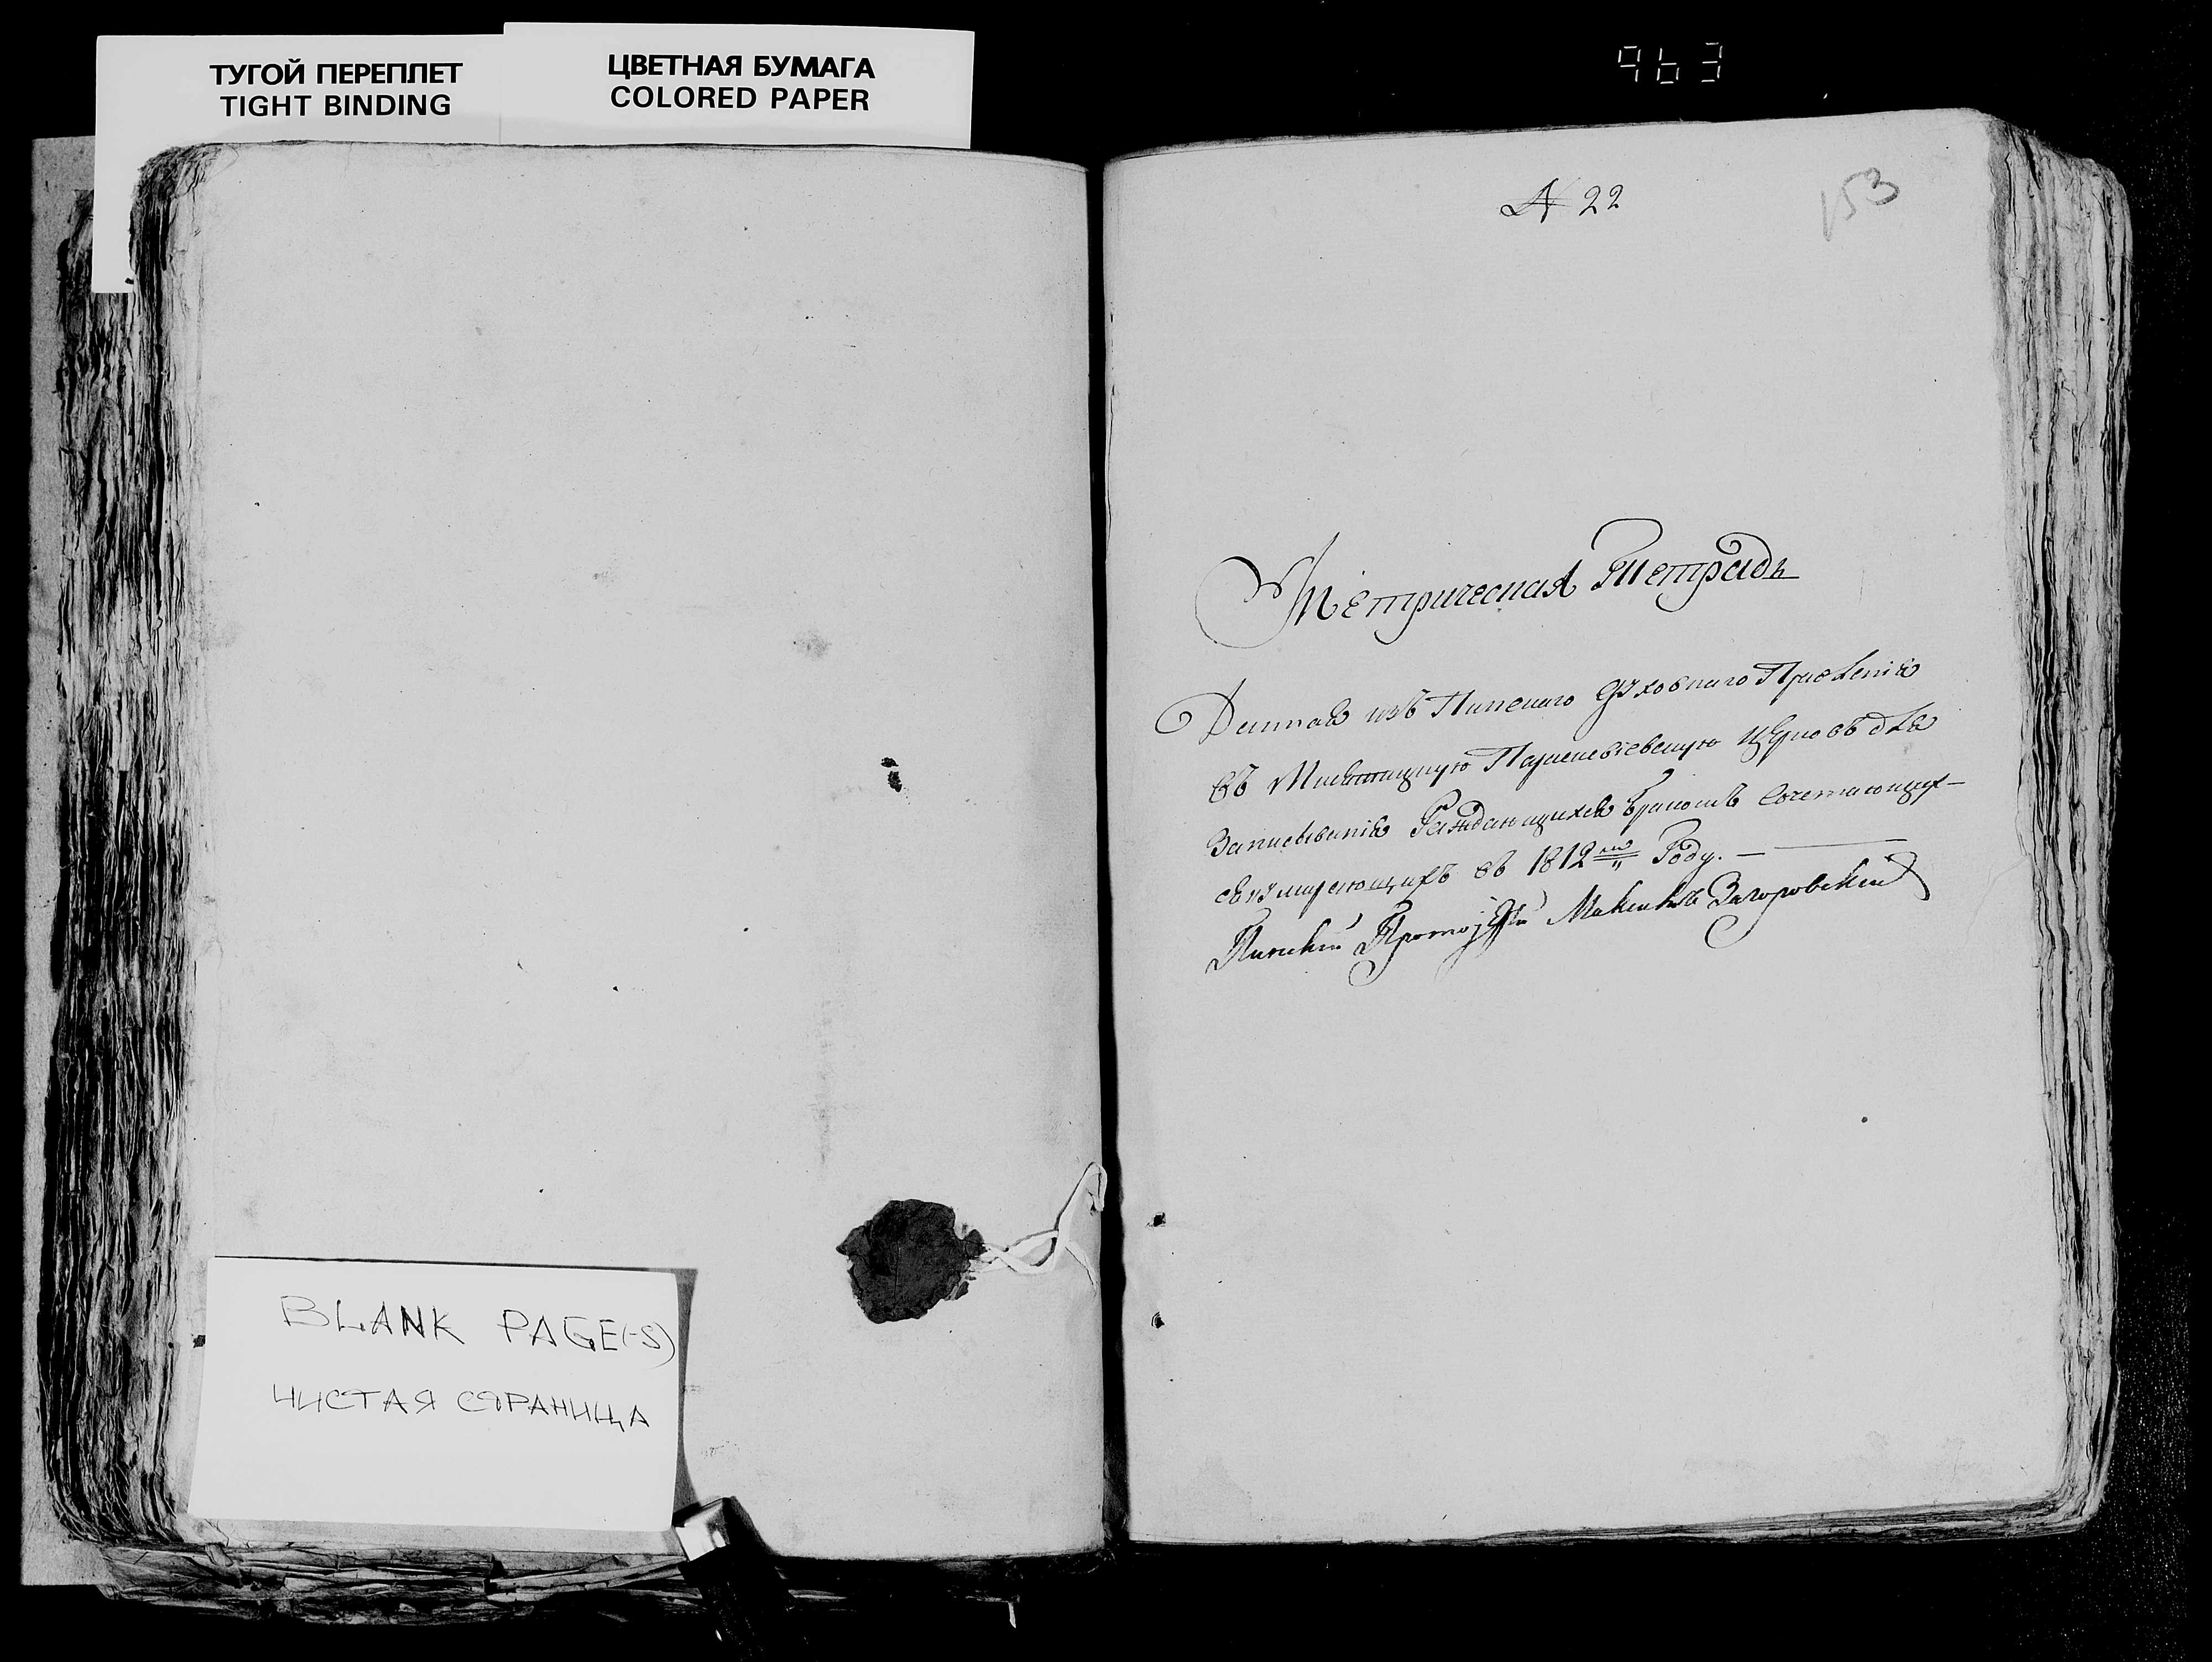 ТУГОЙ ПЕРЕПЛЕТ
TIGHT BINDING
ЦВЕТНАЯ БУМАГА
COLORED PAPER
963
№ 22
153
Метрическая Тетрадь
Данная изъ Пинскаго Духовнаго Правленія
въ Параскевіевскую Церковъ для
Записыванія Раждающихся бракомъ Сочетающих–
и умирающихъ въ 1812мъ Году. —
Пинскій Протоіерей Максимъ Загоровскій
BLANK PAGE(-S)
ЧИСТАЯ СТРАНИЦА